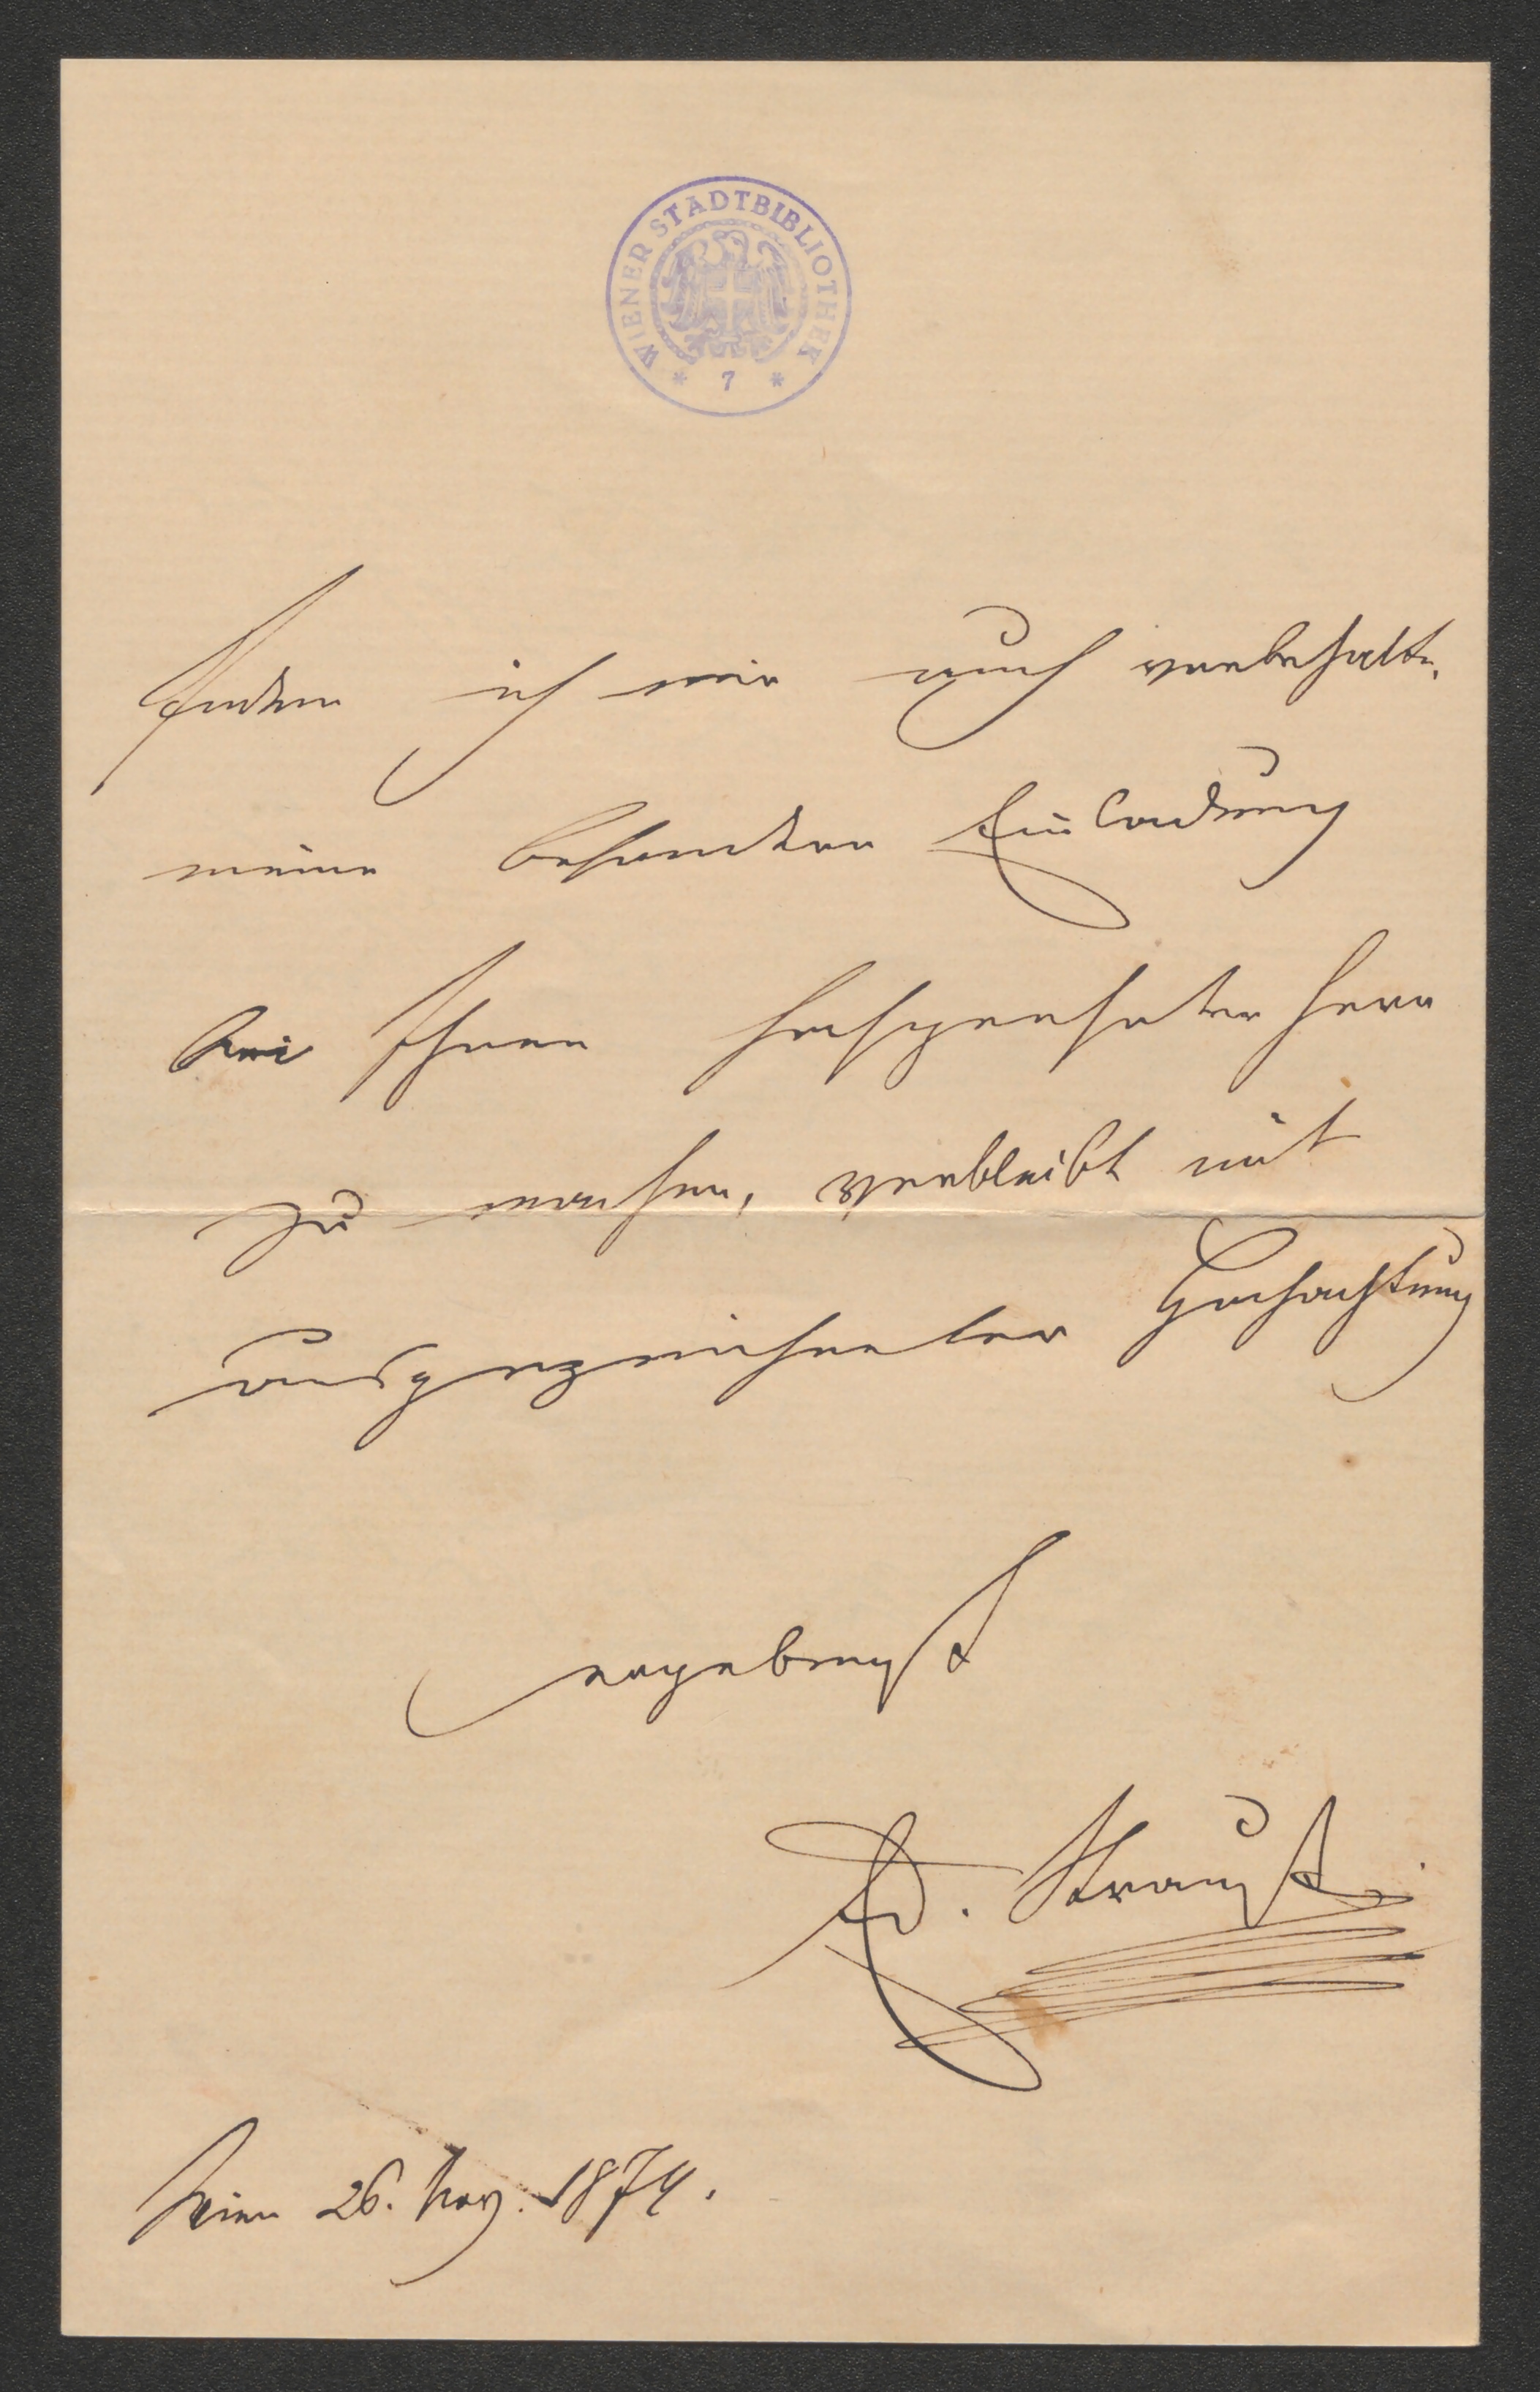 WIENER STADTBIBLIOTHEK
* 7 *
Indem ich mir auch vorbehalte,
meine besondere Einladung
bei Ihnen hochgeehrter Herr
zu machen, verbleibt mit
ausgezeichneter Hochachtung
ergebenst
Ed. Strauß
Wien 26. Nov. 1874.